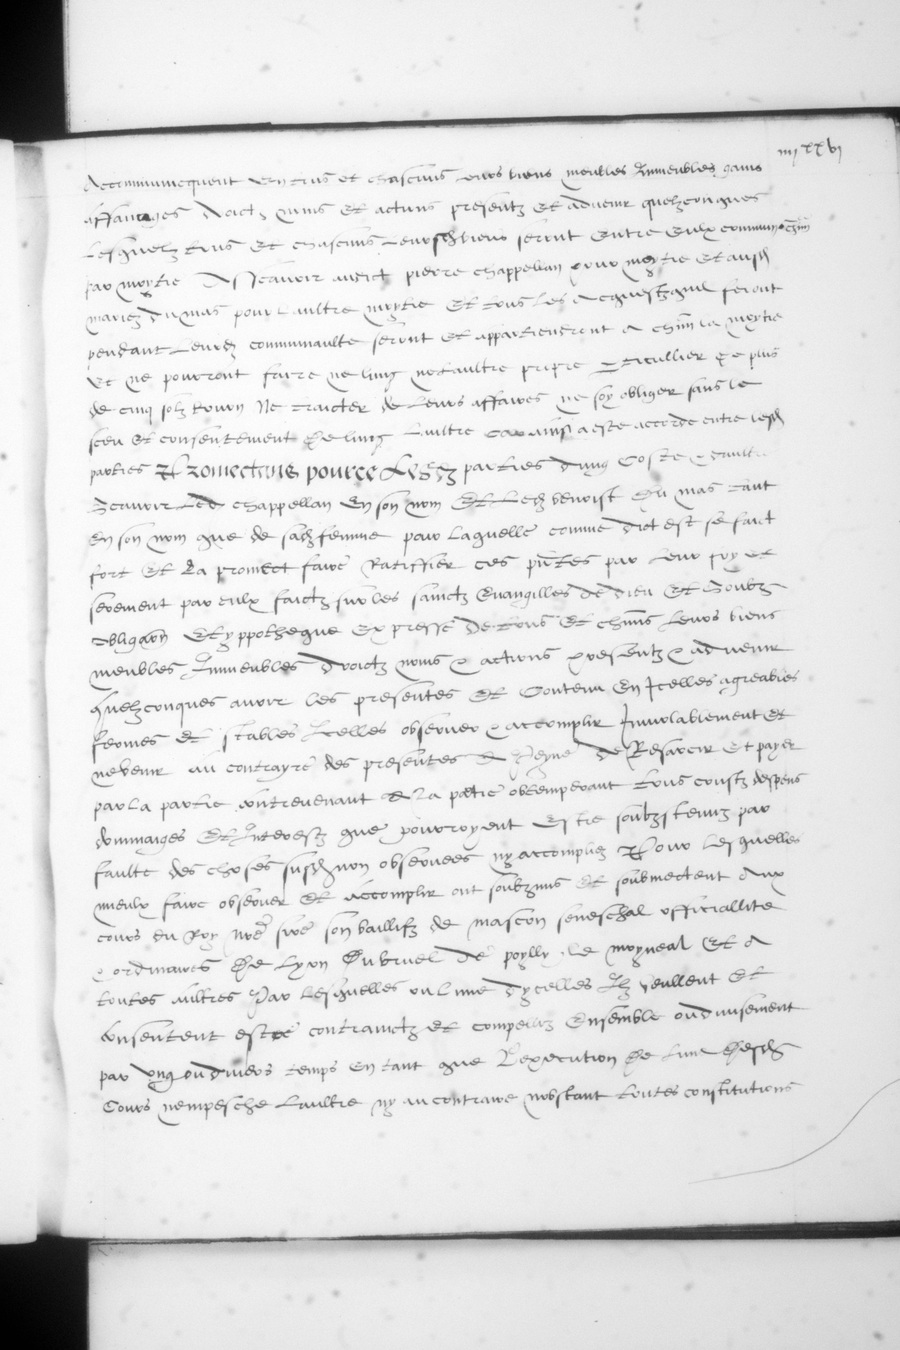 iiij xx vi
Accommunequent en tous et chascuns leurs biens meubles Immeubles gains
affanages droictz noms et actions presentz et advenir quelzconques
Lesquelz tous et chascuns leursd biens seront entre eulx communs chun
par moytie Ascavoir audict pierre chappellan pour moytie et ausd
mariez du mas pour l aultre moytie Et tous les acquestz quil feront
pendant leurd communaulte seront et appartiendront a chun la moytie
Et ne pourront faire ne lung ne l aultre propre particullier de plus
de cinq solz tourn Ne traicter de leurs affaires ne soy obliger sans le
sceu et consentement de lung l aultre Car ainsi a este accorde entre lesd
parties Promectans pource Lesd parties dung Coste et daultre
Scavoir Led chappellan en son nom Et Led benoist du mas tant
En son nom que de sad femme pour laquelle comme dict est se faict
fort et la promect faire Ratiffier ces pntes par leur foy et
serement par eulx faictz sur les sainctz Evangilles de dieu Et soubz
obligaon Et yppotheque Expresse de tous et chuns leurs biens
meubles Immeubles droictz noms & actions presentz & advenir
quelzconques avoir les presentes et Contenu En Icelles agreables
fermes et stables Icelles observer & accomplir Inviolablement et
ne venir au contrayre des presentes a peyne de Resarcir et payer
par la partie contrevenant a la ptie obtemperant tous coustz despens
dommaiges et Interestz que pourroyent estre soubzstenuz par
faulte des choses susd non observees ny accomplies Pour lesquelles
mieulx faire observer et accomplir ont soubzmis et soubmectent aux
cours du Roy nre sire son baillifz de mascon seneschal officiallite
& ordinaires de Lyon du bruel de poylly le moyneal Et a
toutes aultres Par lesquelles ou lune dycelles Ilz veullent et
consentent estre contrainctz et compellis Ensemble ou divisement
par ung ou divers temps En tant que l execution de lune desd
Cours nempesche l aultre ny au contraire nobstant toutes constitutions